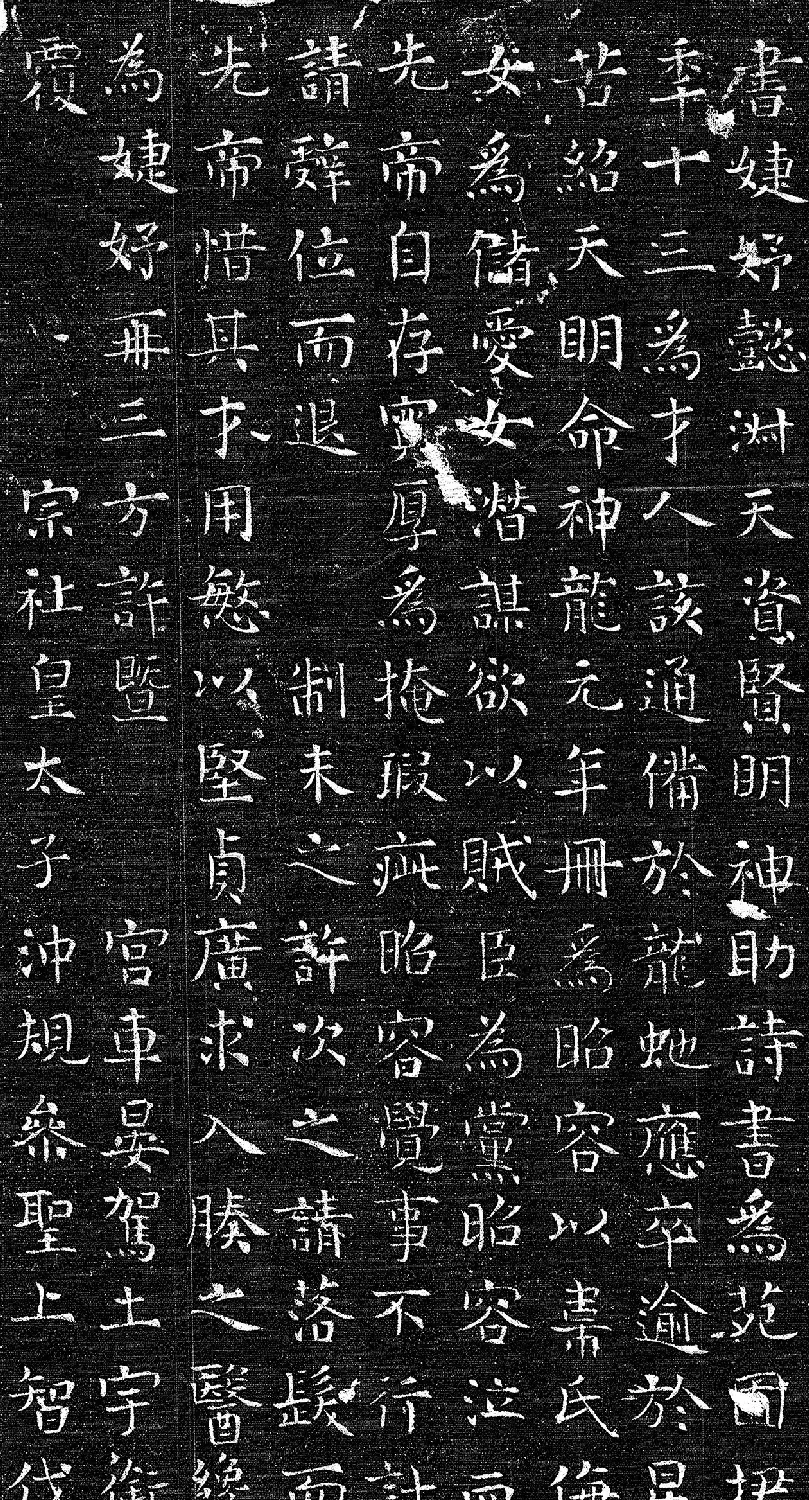 書婕妤懿淑天資賢明神助詩書爲苑囿捃
秊十三爲才人該通備於龍虵應卒逾於星
苦紹天明命神龍元年冊爲昭容以韋氏侮
女爲儲愛女潛謀欲以賊臣為黨昭容泣而
先帝自存寬厚爲掩瑕疵昭容覺事不行計
請辭位而退 制未之許次之請落髮而
先帝惜其才用慜以堅貞廣求入腠之醫纔
為婕妤再三方許暨 宮車晏駕土宇銜
覆 宗社皇太子沖規參聖上智伐